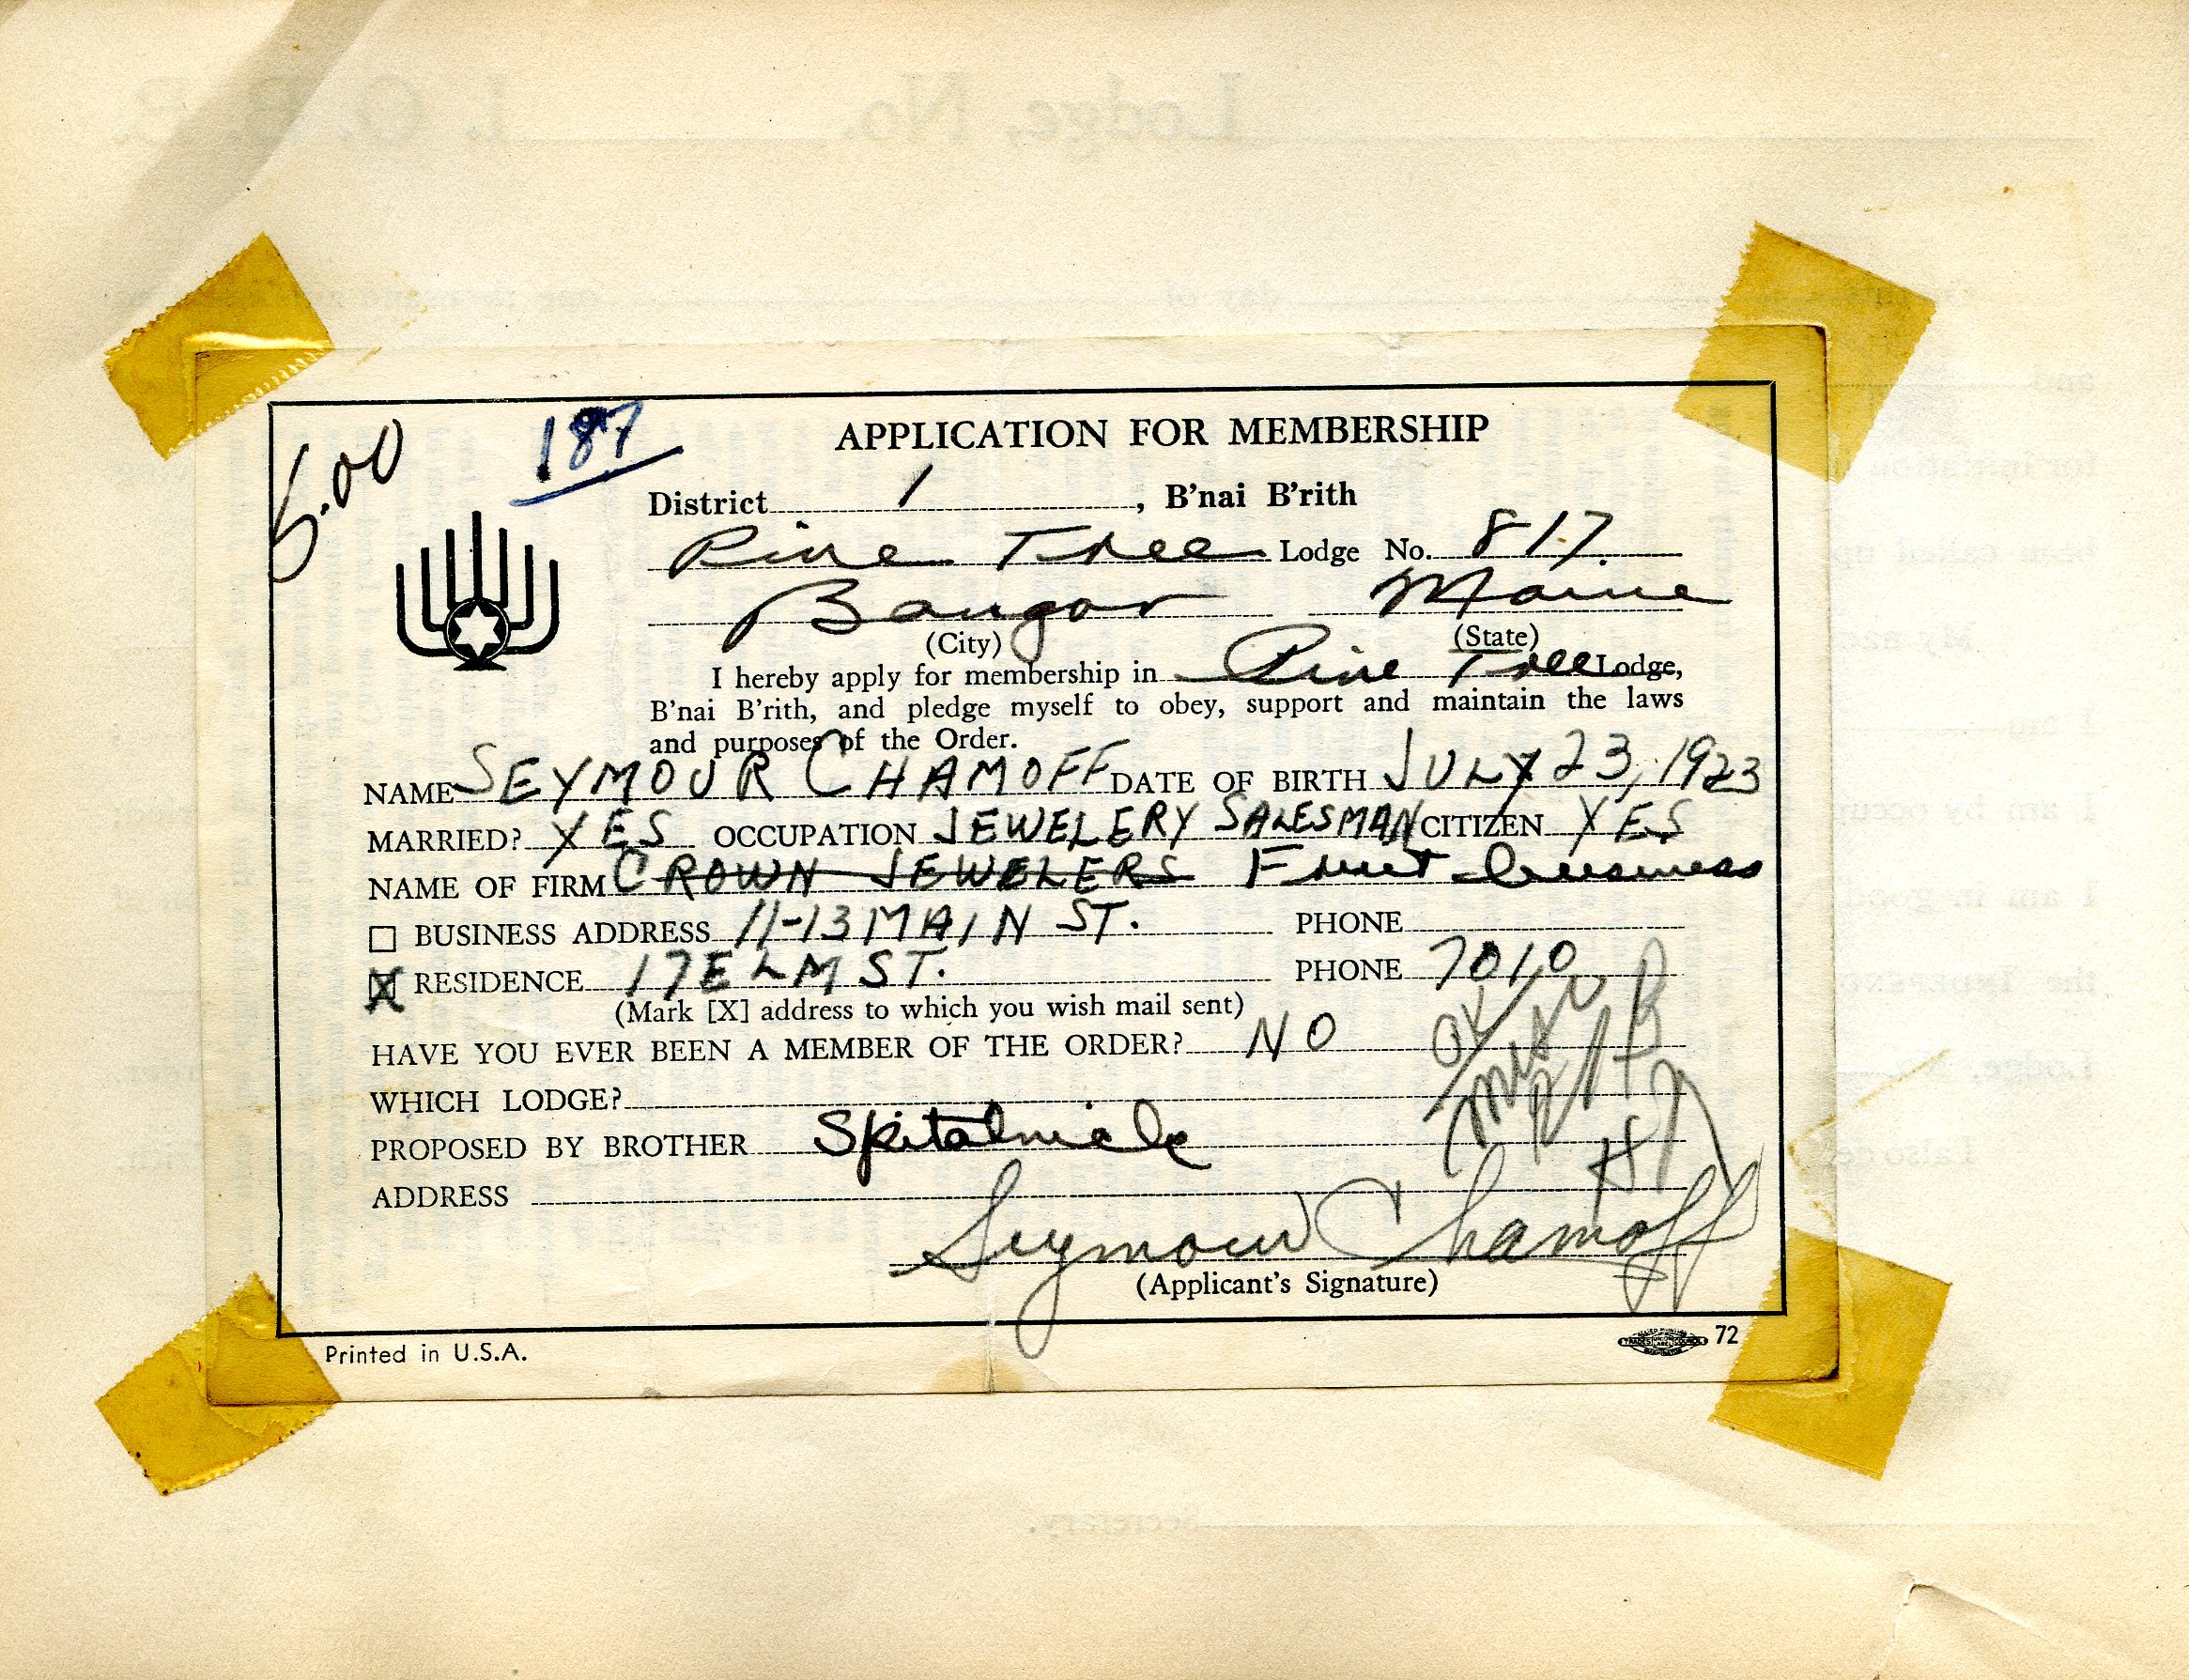 5.00
187
APPLICATION FOR MEMBERSHIP
District 1, B'nai B'rith
Pine Tree Lodge No. 817.
Bangor Maine
(City) (State)
I hereby apply for membership in Pine Tree Lodge,
B'nai B'rith, and pledge myself to obey, support and maintain the laws
and purposes of the Order.
NAME SEYMOUR CHAMOFF DATE OF BIRTH JULY 23, 1923
MARRIED? YES OCCUPATION JEWELERY SALESMAN CITIZEN YES
NAME OF FIRM CROWN JEWELERS Fruit business
BUSINESS ADDRESS 11-13 MAIN ST. PHONE
X RESIDENCE 17 ELM ST. PHONE 7010
(Mark [X] address to which you wish mail sent)
HAVE YOU EVER BEEN A MEMBER OF THE ORDER? NO
WHICH LODGE?
PROPOSED BY BROTHER
ADDRESS
OK
Seymour Chamoff
(Applicant's Signature)
Printed in U.S.A.
72